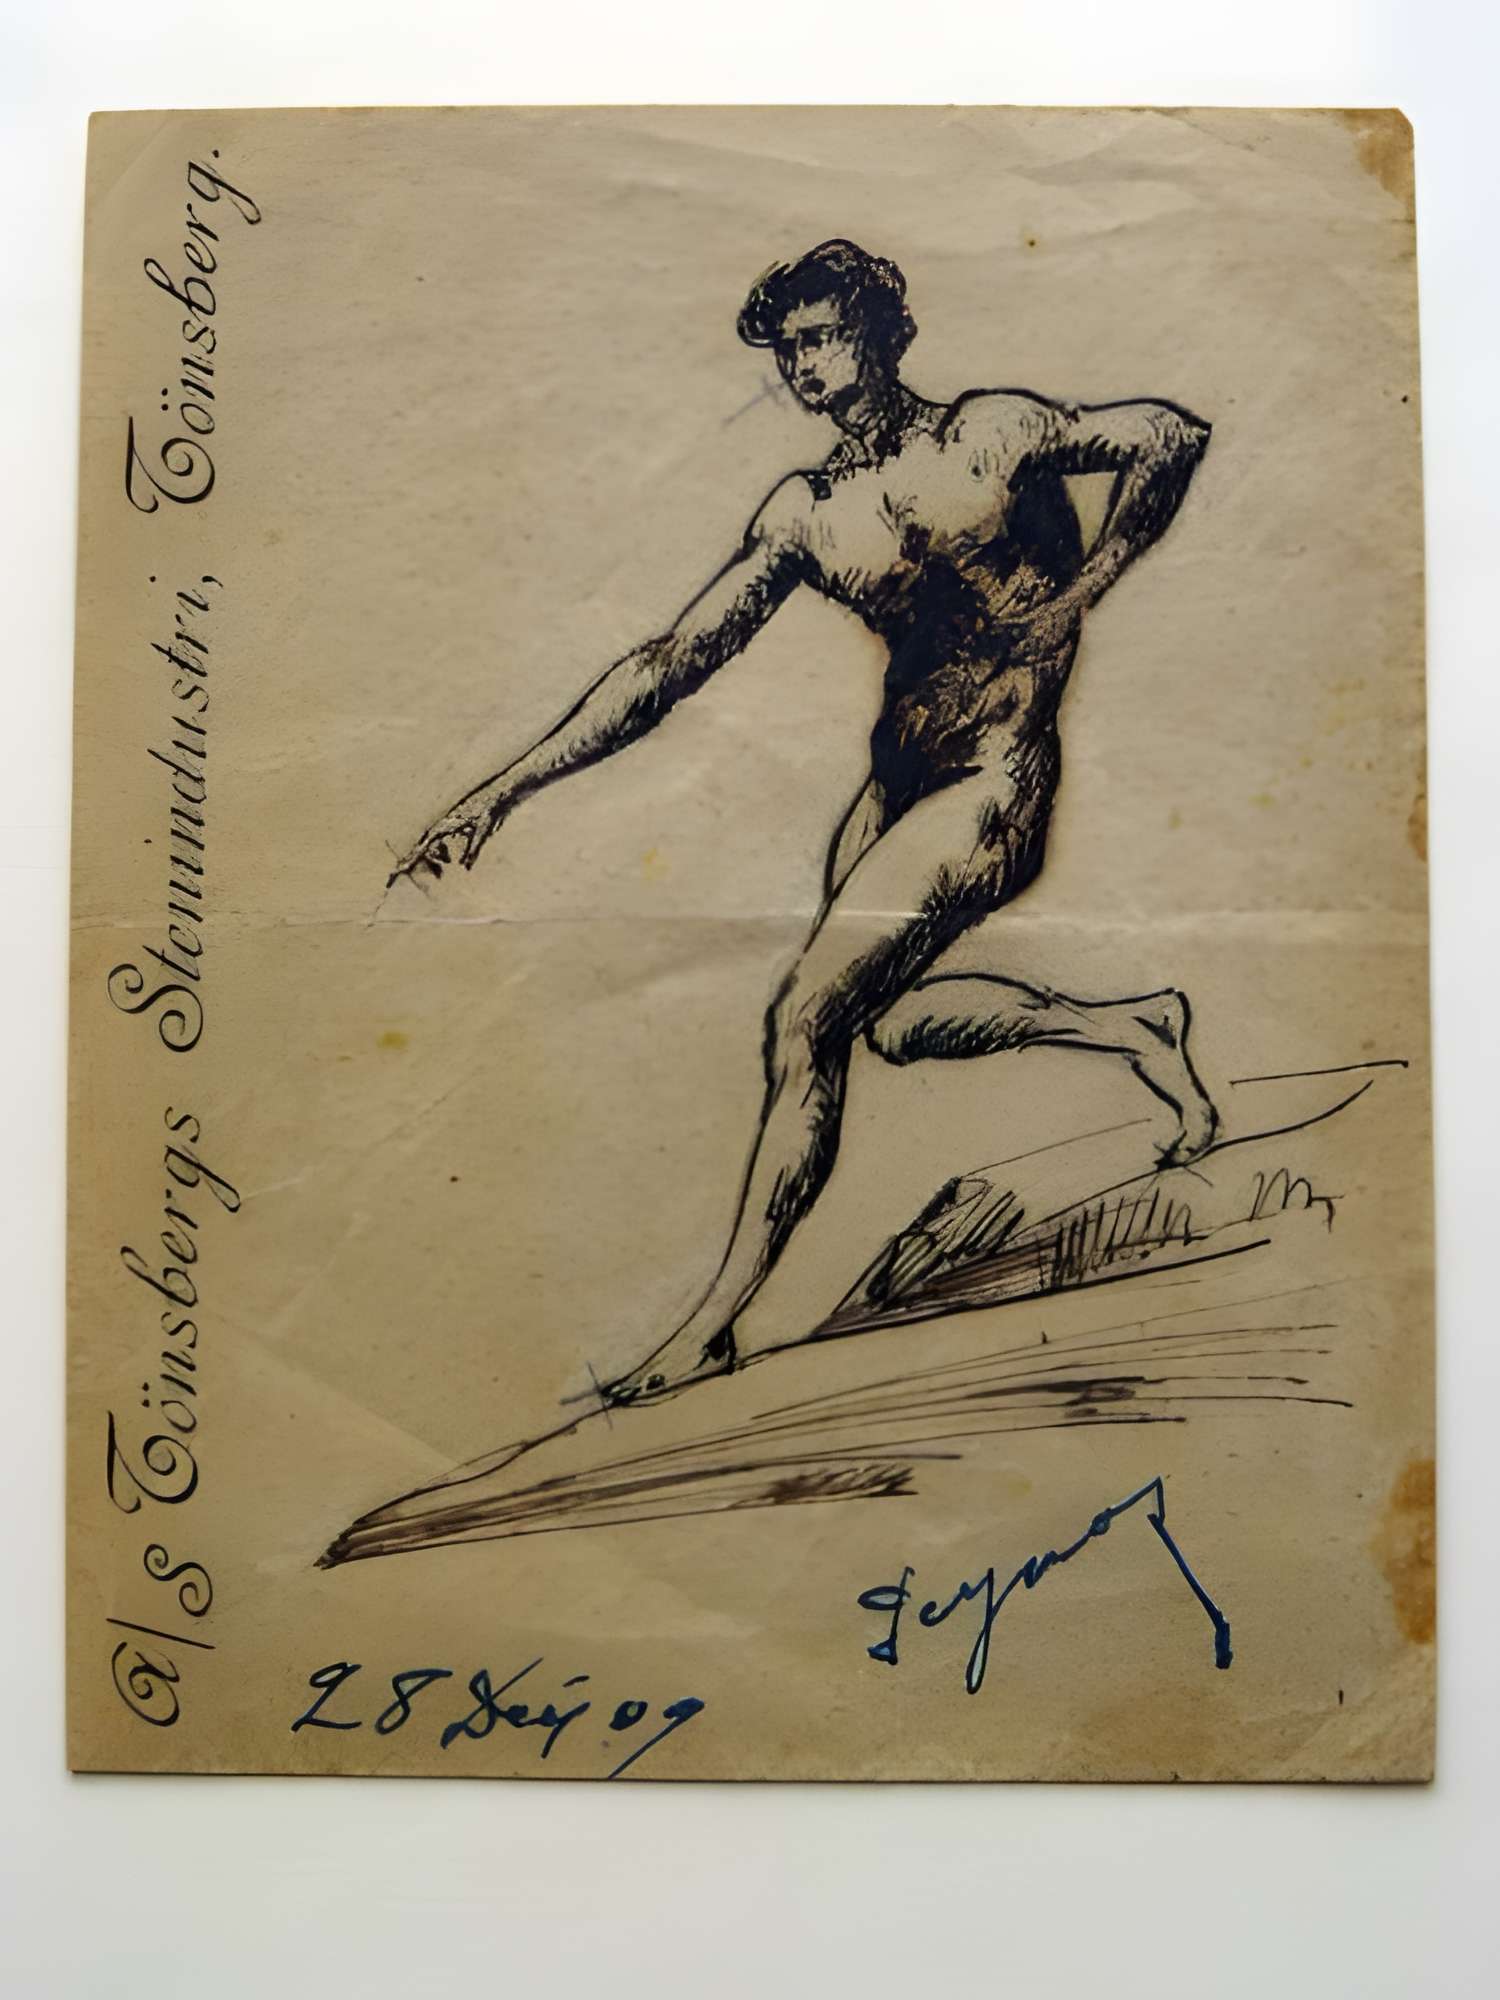 A/S Tönsbergs Stenindustri, Tönsberg.
28 09